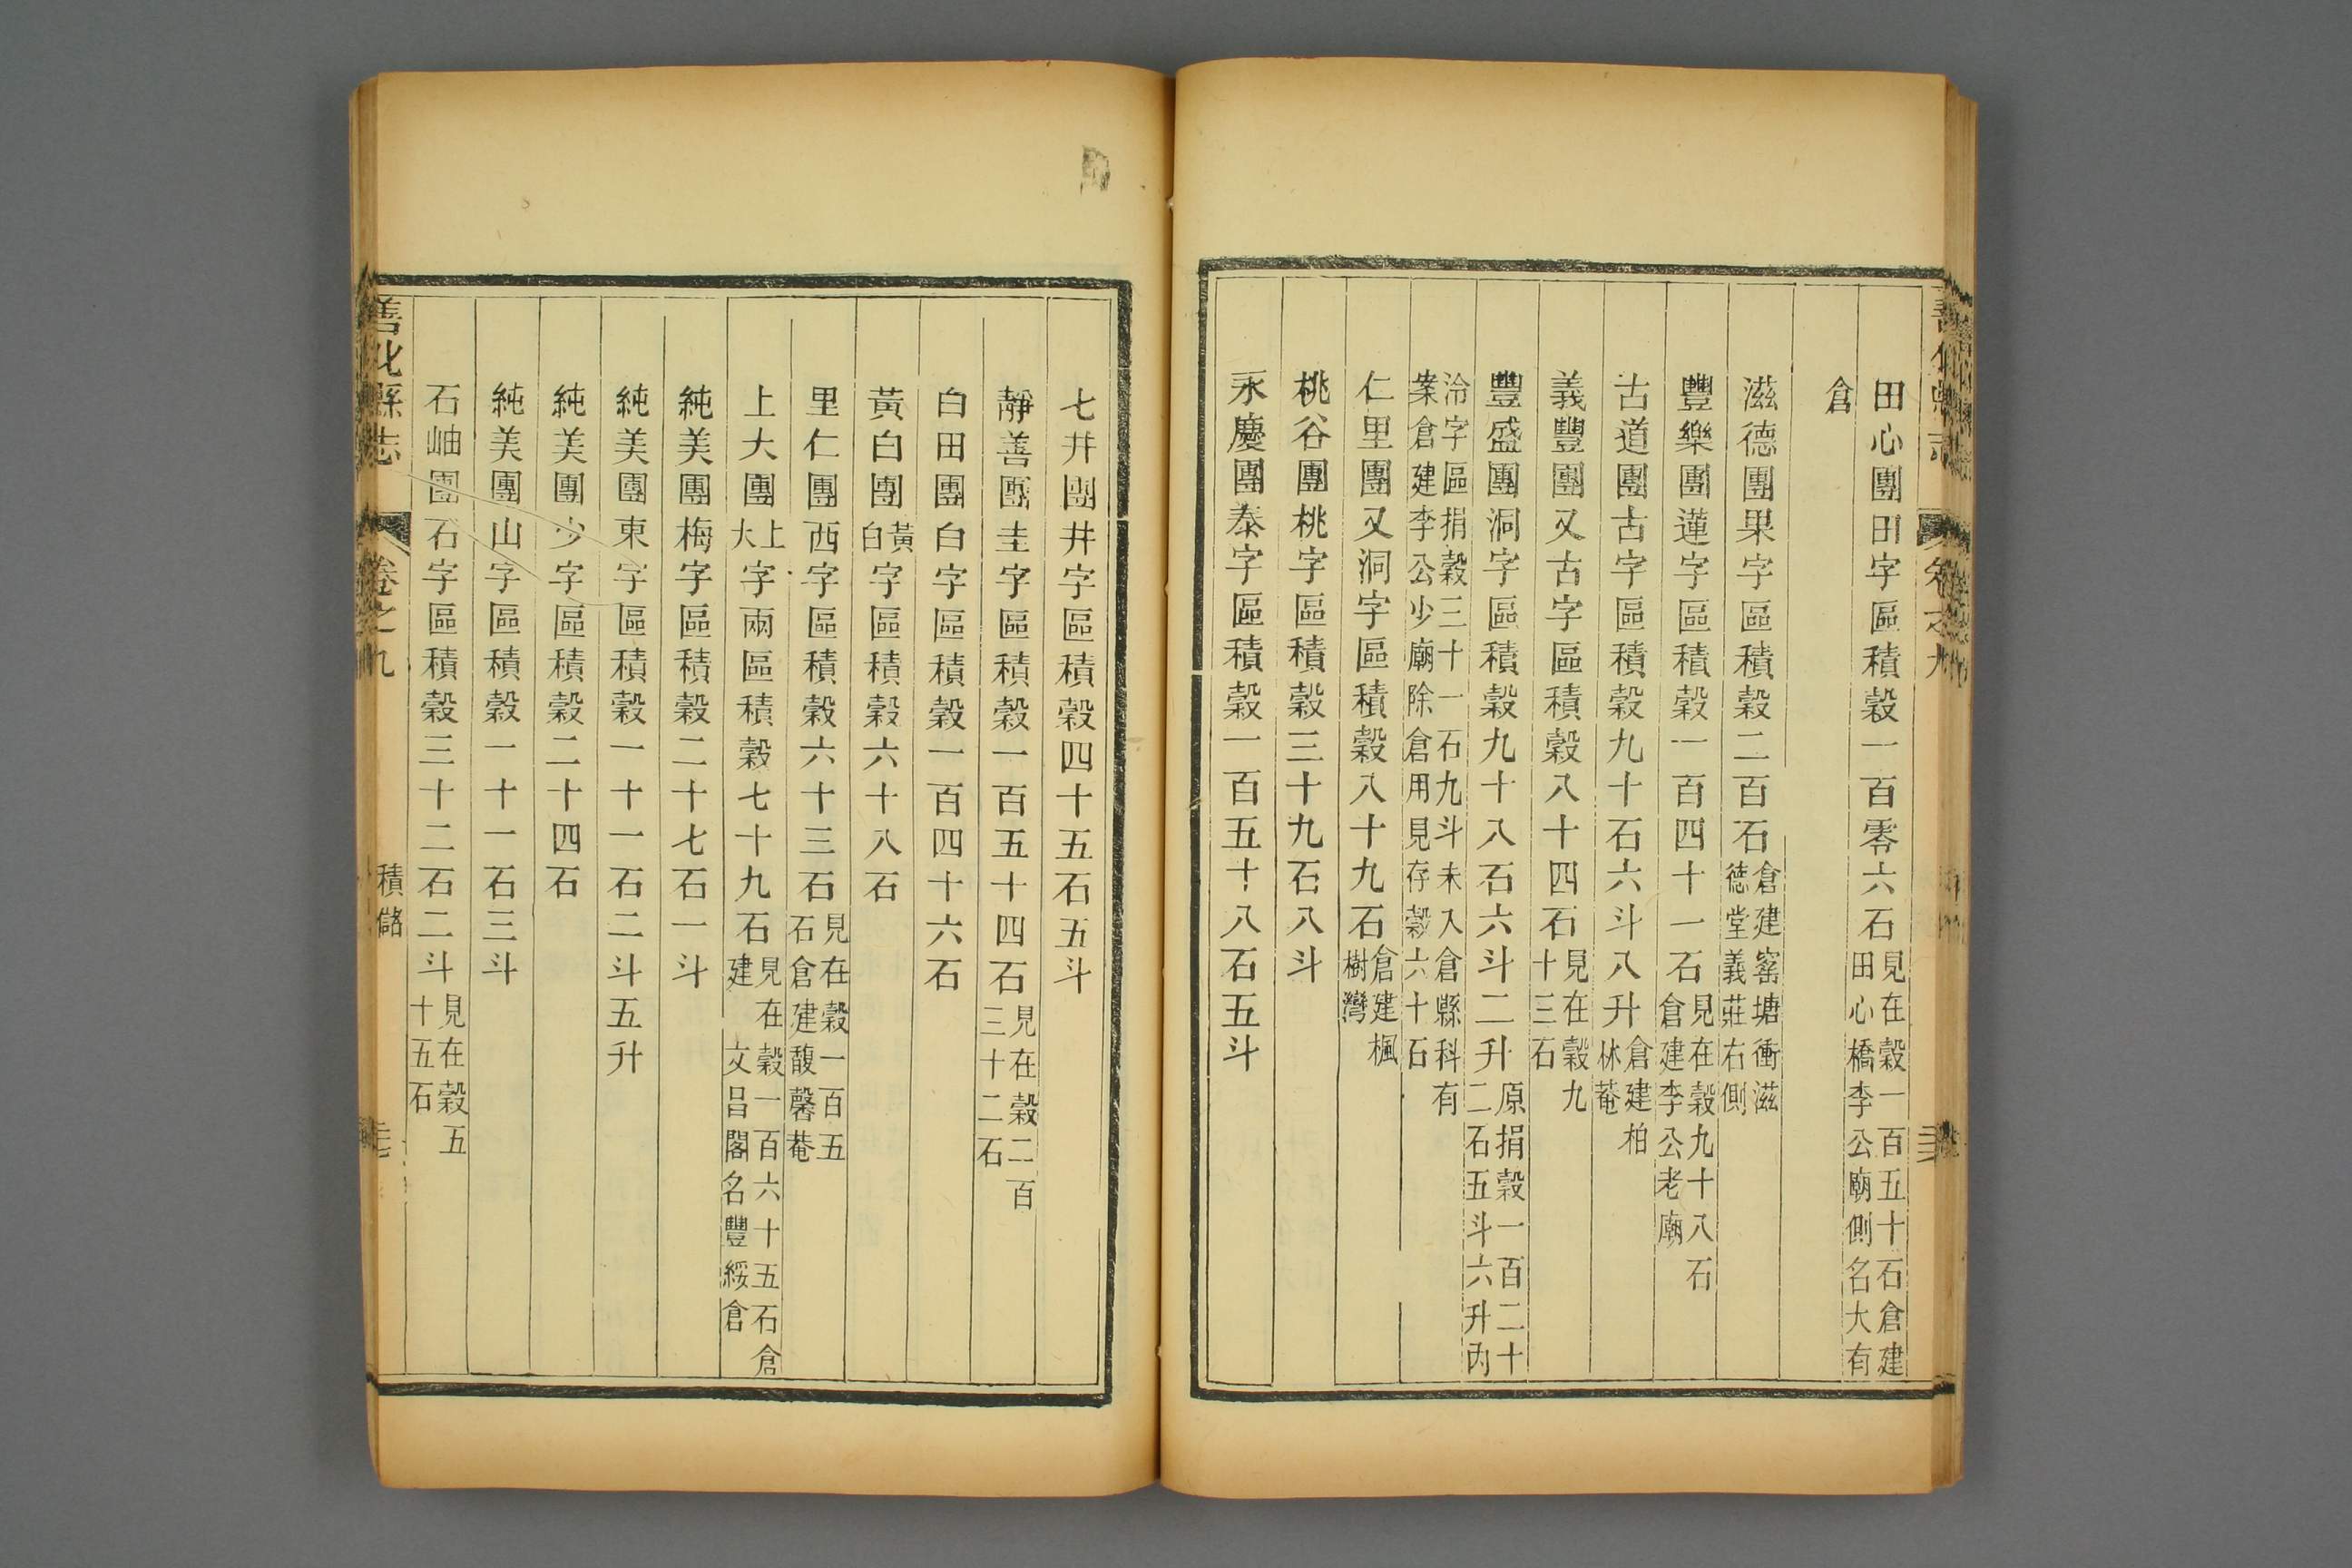 田心團田字區積穀一百零六石見在穀一百五十石倉建田心橋李公廟側名大有
倉
滋德團果字區積穀二百石倉建窰塘衝滋德堂義莊右側
豐樂團蓮字區積穀一百四十一石見在穀九十八石倉建李公老廟
古道團古字區積穀九十石六斗八升倉建柏林菴
義豐團又古字區積穀八十四石見在穀九十三石
豐盛團洞字區積穀九十八石六斗二升原捐穀一百二十二石五斗六升內
冾字區捐穀三十一石九斗未入倉縣科有案倉建李公少廟除倉用見存穀六十石
仁里團又洞字區積穀八十九石倉建楓樹灣
桃谷團桃字區積穀三十九石八斗
永慶團泰字區積穀一百五十八石五斗
七井團井字區積穀四十五石五斗
靜善團圭字區積穀一百五十四石見在穀二百三十二石
白田團白字區積穀一百四十六石
黃白團黃白字區積穀六十八石
里仁團西字區積穀六十三石見在穀一百五石倉建馥馨菴
上大團上大字兩區積穀七十九石見在穀一百六十五石倉建文昌閣名豐綏倉
純美團梅字區積穀二十七石一斗
純美團東字區積穀一十一石二斗五升
純美團少字區積穀二十四石
純美團山字區積穀一十一石三斗
石岫團石字區積穀三十二石二斗見在穀五十五石
善化縣志 卷之九 積儲